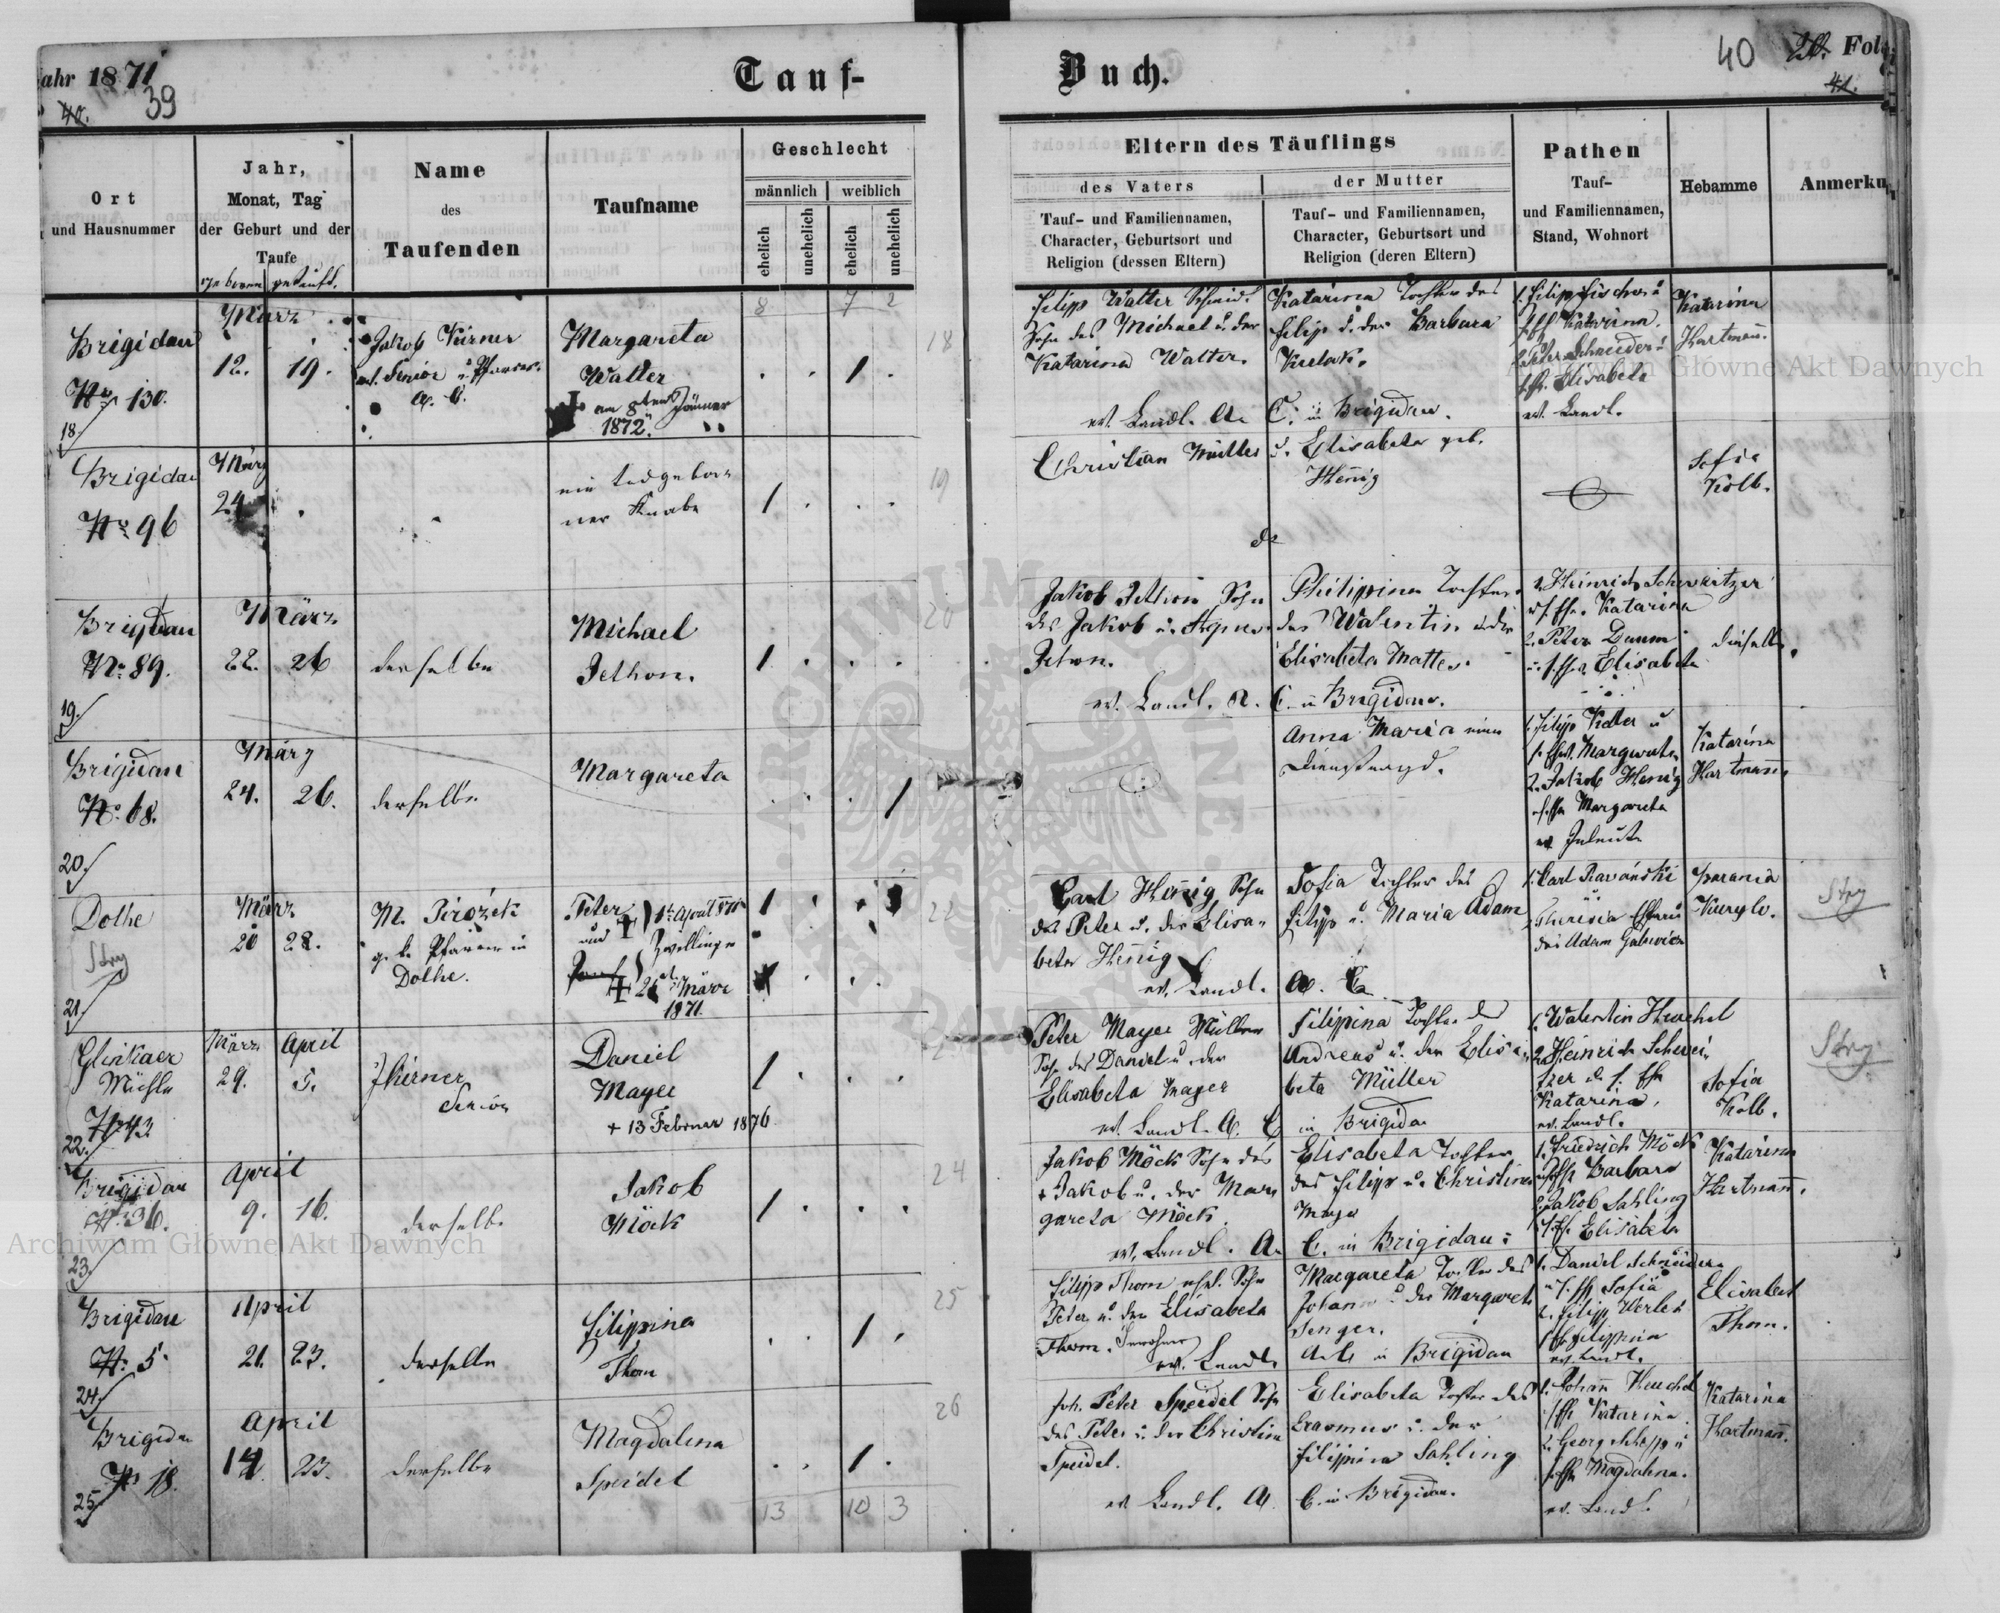 ahr 1871
40.
39
Tauf-
Ort
und Hausnummer
Jahr,
Monat, Tag
der Geburt und der
Taufe
geboren getauft.
Name
des
Taufenden
Taufname
Geschlecht
männlich
weiblich
ehelich
unehelich
ehelich
unehelich
8 7 2
Brigidau
No 130.
18.
März
12. 19.
Jakob Kürner
ev. Senior u. Pfarrer
A. C.
Margareta
Walter
am 8ten Jänner
1872.
1
18
Brigidau
No 96
März
24
ein todgebor-
ner Knabe
1
19
Brigidau
No. 89.
19.
März
22. 26
derselbe
Michael
Jethon.
1
20
Brigidau
No. 68.
20.
März
24. 26.
derselbe
Margareta
1
Dolhe
Stry
21.
März
20 28.
M. Pirożek
g. k. Pfarrer in
Dolhe.
Peter
und
1t. April 871
Zwillinge
26 März
1871.
1
22
Mühle
22.
März April
29. 5.
Kürner
Senior
Daniel
Mayer
+ 13 Februar 1876
1
Brigidau
No 36.
23.
April
9. 16.
derselbe
Jakob
Möck
1
24
Brigidau
No. 5.
24.
April
21. 23.
derselbe
Filippina
Thom
1
25
Brigidau
No 18.
25.
April
14 23.
derselbe
Magdalena
Speidel
1
26
13 10 3
Buch.
40
Fol
41.
Eltern des Täuflings
des Vaters
Tauf- und Familiennamen,
Character, Geburtsort und
Religion (dessen Eltern)
der Mutter
Tauf- und Familiennamen,
Character, Geburtsort und
Religion (deren Eltern)
Pathen
Tauf-
und Familiennamen,
Stand, Wohnort
Hebamme
Anmerku
Filipp Walter Schmid
Sohn des Michael u. der
Katarina Walter.
ev. Landl. A.
Katarina Tochter des
Filip u. der Barbara
C. in Brigidau.
1. Filipp Fischer u
s. Eh. Katarina.
2. Peter Schneider u
s. Eh. Elisabeta
ev. Landl.
Katarina
Hartmann.
Christian Müller
u. Elisabeta geb.
Hennig
Sofia
Kolb.
Jakob Jethon Sohn
des Jakob u. Agnes
Jethon.
ev. Landl. A.
Philippina Tochter
des Walentin u. der
Elisabeta Mattes.
C. in Brigidau.
1. Heinrich Schweitzer
u. s. Ehe. Katarina
2. Peter Daum
u. s. Ehe. Elisabeta
dieselbe.
Anna Maria eine
Dienstmagd.
1. Filipp Keller u
s. Ehe. Margareta
2. Jakob Hennig
s. Ehe Margareta
Katarina
Hartmann.
Carl Hennig Sohn
des Peter u. der Elisa-
beta Hennig
ev. Landl.
Sofia Tochter des
Filipp u. Maria Adam
A. C.
1. Carl Rawański
Kurylo.
Stry
Peter Mayer Müller
Sohn des Daniel u. der
Elisabeta Mayer
ev. Landl. A. C.
Filippina Tochter des
Andreas u. der Elisa-
beta Müller
in Brigidau
1. Walentin Heuchel
2. Heinrich Schwei-
tzer u. s. Ehe
Katarina.
ev. Landl.
Sofia
Kolb.
Stry
Jakob Möck Sohn des
+ Jakob u. der Mar-
gareta Möck.
ev. Landl. A.
Elisabeta Tochter
des Filipp u. Christina
Mayer
C. in Brigidau
1. Friedrich Möck
u. s. Ehe Barbara
2. Jakob Sahling
s. Eh. Elisabeta
Katarina
Hartmann.
Filipp Thom ehel. Sohn
Peter u. der Elisabeta
Thom.
ev. Landl.
Margareta Tochter des
Johann u. der Margareta
Senger.
A. C. in Brigidau
1. Daniel Schneider
u. s. Eh Sofia
2. Filipp Herle u
s. Eh. Filippina
ev. Landl.
Elisabet
Thom.
Joh. Peter Speidel Sohn
des Peter u. der Christina
Speidel.
ev. Landl. A.
Elisabeta Tochter des
Erasmus u. der
Filippina Sahling
C. in Brigidau.
1. Johann Heuchel
s. Ehe Katarina.
s. Ehe Magdalena.
ev. Landl.
Katarina
Hartmann.
Archiwum Główne Akt Dawnych
Archiwum Główne Akt Dawnych